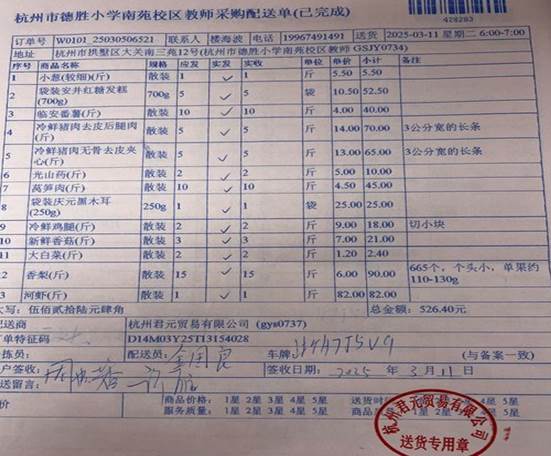 杭州市德胜小学南苑校区教师采购配送单(已完成)
428283
订单号 W0101_25030506521 联系人 楼海波 电话 19967491491 送货 2025-03-11 星期二 6:00-7:00
地址 杭州市拱墅区大关南三苑12号(杭州市德胜小学南苑校区教师 GSJY0734)
序号 商品名称 规格 应发 实发 实收 单位 单价 小计 备注
1 小葱(较细)(斤) 散装 1 ✓ 1 斤 5.50 5.50
2 袋装安井红糖发糕(700g) 700g 5 ✓ 5 袋 10.50 52.50
3 临安番薯(斤) 散装 10 ✓ 10 斤 4.00 40.00
4 冷鲜猪肉去皮后腿肉(斤) 散装 5 ✓ 5 斤 14.00 70.00 3公分宽的长条
5 冷鲜猪肉无骨去皮夹心(斤) 散装 5 ✓ 5 斤 13.00 65.00 3公分宽的长条
6 光山药(斤) 散装 2 ✓ 2 斤 5.00 10.00
7 莴笋肉(斤) 散装 10 ✓ 10 斤 4.50 45.00
8 袋装庆元黑木耳(250g) 250g 1 ✓ 1 袋 25.00 25.00
9 冷鲜鸡腿(斤) 散装 2 ✓ 2 斤 9.00 18.00 切小块
10 新鲜香菇(斤) 散装 3 ✓ 3 斤 7.00 21.00
11 大白菜(斤) 散装 2 ✓ 2 斤 1.20 2.40
2 香梨(斤) 散装 15 ✓ 15 斤 6.00 90.00 665个，个头小，单果约110-130g
3 河虾(斤) 散装 1 ✓ 1 斤 82.00 82.00
大写: 伍佰贰拾陆元肆角 总金额: 526.40元
配送商 杭州君元贸易有限公司 (gys0737)
订单特征码 D14M03Y25TI3154028
分拣员: 配送员: 车牌 (与备案一致)
客户签收 签收日期: 2025年 3月 11日
配送留言:
评价 商品价格: 1星 2星 3星 4星 5星 送货时 1星 2星 3星 4星 5星
服务质量: 1星 2星 3星 4星 5星 商品质 1星 2星 3星 4星 5星
杭州君元贸易有限公司
送货专用章